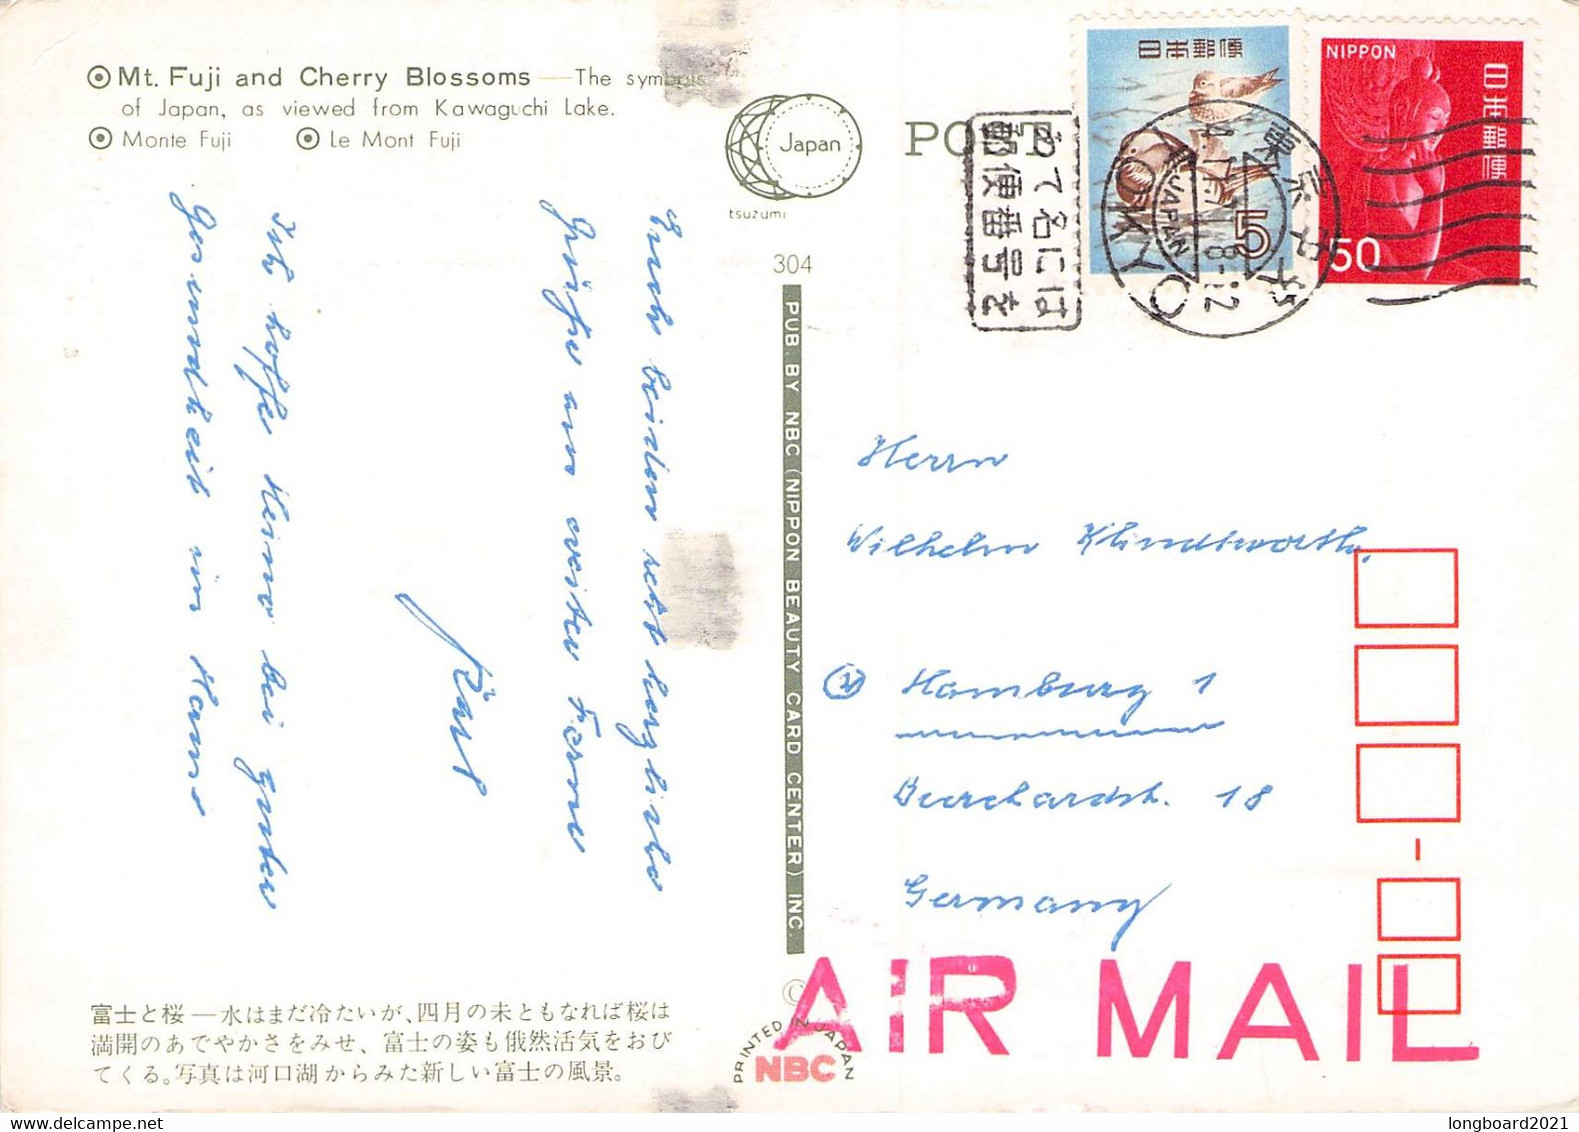 Mt. Fuji and Cherry Blossoms — The symbols
of Japan, as viewed from Kawaguchi Lake.
Monte Fuji Le Mont Fuji
Japan
tsuzumi
304
PO
日本郵便
5
NIPPON
日本郵便
50
あて名には
郵便番号を
東京中央
JAPAN
TOKYO
Euch beiden recht herzliche
Grüße aus weiter Ferne
Karl
Ich hoffe Heino bei guter
Gesundheit im Hause
PUB. BY NBC (NIPPON BEAUTY CARD CENTER) INC.
Herrn
Wilhelm Klindtworth,
2 Hamburg 1
Burchardstr. 18
Germany
AIR MAIL
富士と桜—水はまだ冷たいが、四月の末ともなれば桜は
満開のあでやかさをみせ、富士の姿も俄然活気をおび
てくる。写真は河口湖からみた新しい富士の風景。
©
PRINTED IN JAPAN
NBC
longboard2021